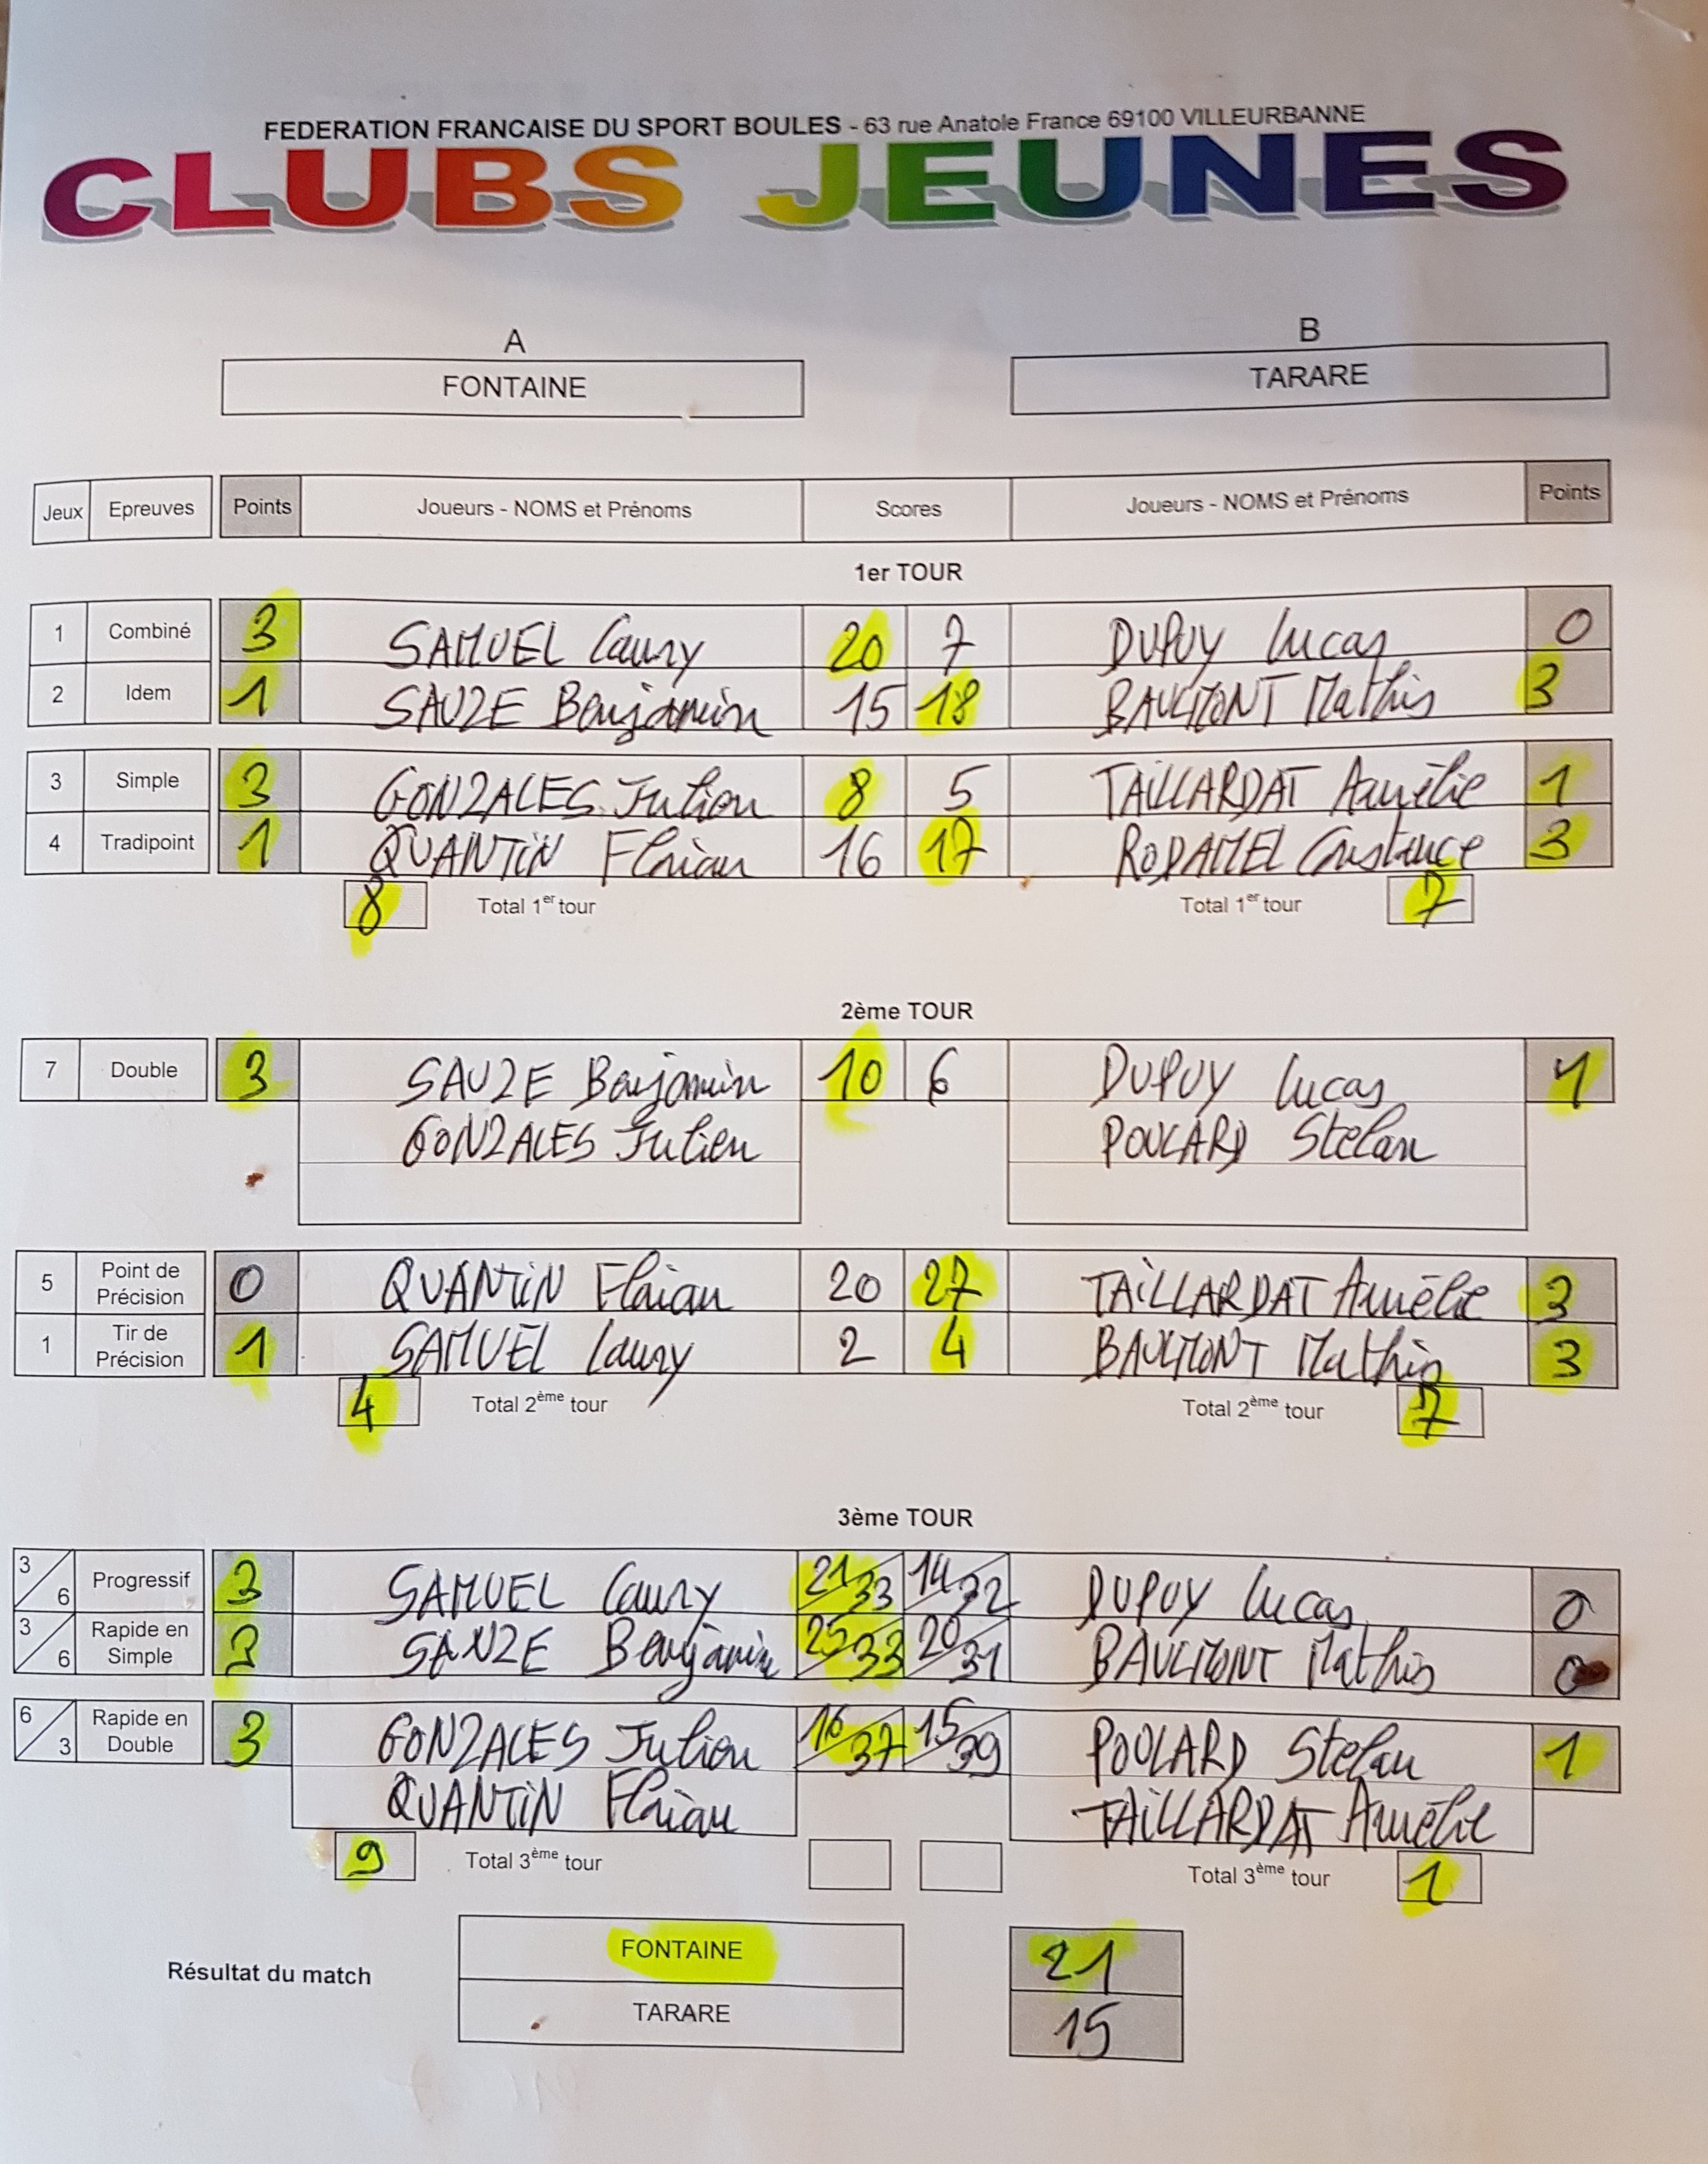 FEDERATION FRANCAISE DU SPORT BOULES - 63 rue Anatole France 69100 VILLEURBANNE
CLUBS JEUNES
A B
FONTAINE TARARE
Jeux Epreuves Points Joueurs - NOMS et Prénoms Scores Joueurs - NOMS et Prénoms Points
1er TOUR
1 Combiné 3 SAMUEL Laury 20 7 DUPUY Lucas 0
2 Idem 1 SAUZE Benjamin 15 18 BAULMONT Mathis 3
3 Simple 3 GONZALES Julien 8 5 TAILLARDAT Aurélie 1
4 Tradipoint 1 QUANTIN Florian 16 17 RODAMEL Constance 3
8 Total 1er tour Total 1er tour 7
2ème TOUR
7 Double 3 SAUZE Benjamin 10 6 DUPUY Lucas 1
GONZALES Julien POULARD Stelan
5 Point de Précision 0 QUANTIN Florian 20 27 TAILLARDAT Aurélie 3
1 Tir de Précision 1 SAMUEL Laury 2 4 BAULMONT Mathis 3
4 Total 2ème tour Total 2ème tour 7
3ème TOUR
3/6 Progressif 3 SAMUEL Laury 21/33 14/32 DUPUY Lucas 0
3/6 Rapide en Simple 3 SAUZE Benjamin 25/33 20/31 BAULMONT Mathis 0
6/3 Rapide en Double 3 GONZALES Julien 16/37 15/39 POULARD Stelan 1
QUANTIN Florian TAILLARDAT Aurélie
9 Total 3ème tour Total 3ème tour 1
Résultat du match FONTAINE 21
TARARE 15